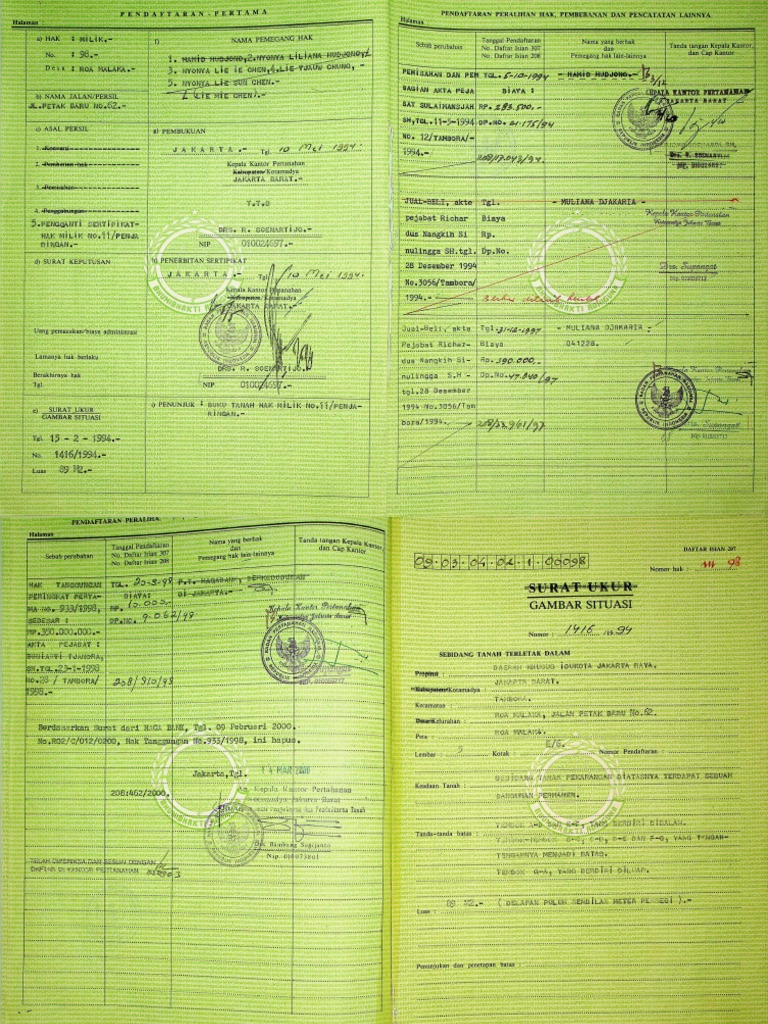 PENDAFTARAN - PERTAMA
Halaman :
a) HAK : MILIK.-
No. : 98.-
Desa : ROA MALAKA.-
b) NAMA JALAN/PERSIL
JL.PETAK BARU NO.62.-
c) ASAL PERSIL
1. Konversi
2. Pemberian hak
3. Pemisahan
4. Penggabungan
5. PENGGANTI SERTIPIKAT-
HAK MILIK NO.11/PENJA
RINGAN.-
d) SURAT KEPUTUSAN
Uang pemasukan/biaya administrasi
Lamanya hak berlaku
Berakhirnya hak
Tgl.
e) SURAT UKUR
GAMBAR SITUASI
Tgl 15 - 2 - 1994.-
No. 1416/1994.-
Luas 89 M2.-
f) NAMA PEMEGANG HAK
1. HAMID HUDJONO, 2.NYONYA LILIANA HUDJONO,
3. NYONYA LIE IE CHEN, 4.LIE TJAUW CHUNG, -
5. NYONYA LIE SUN CHEN.-
( LIE MIE CHEN ).-
g) PEMBUKUAN
JAKARTA.- Tgl. 10 Mei 1994.-
Kepala Kantor Pertanahan
Kabupaten/Kotamadya
JAKARTA BARAT.-
T.T.D
DRS. R. SOENARTIJO.-
NIP 010024697.-
h) PENERBITAN SERTIPIKAT
JAKARTA.- Tgl. 10 Mei 1994.-
Kepala Kantor Pertanahan
Kabupaten/Kotamadya
JAKARTA BARAT.-
DRS. R. SOENARTIJO.-
NIP 010024697.-
i) PENUNJUK : BUKU TANAH HAK MILIK NO.11/PENJA-
RINGAN.-
PENDAFTARAN PERALIHAN HAK, PEMBEBANAN DAN PENCATATAN LAINNYA
Halaman :
Sebab perubahan
Tanggal Pendaftaran
No. Daftar Isian 307
No. Daftar Isian 208
Nama yang berhak
dan
Pemegang hak lain-lainnya
Tanda tangan Kepala Kantor,
dan Cap Kantor
PEMISAHAN DAN PEM TGL. 5-10-1994 - HAMID HUDJONO.-
BAGIAN AKTA PEJA BIAYA :
BAT SULAIMANSJAH RP. 293.500,-
SH,TGL.11-5-1994 DP.NO. 21.175/94
NO. 12/TAMBORA/-
1994.-
KEPALA KANTOR PERTANAHAN
JAKARTA BARAT
JUAL-BELI, akte Tgl. - MULIANA DJAKARIA -
pejabat Richar Biaya
dus Nangkih Si Rp.
nulingga SH.tgl. Dp.No.
28 Desember 1994
No.3056/Tambora/
1994.-
Kepala Kantor Pertanahan
Kotamadya Jakarta Barat
Drs. Supangat
Jual-Beli, akte Tgl. 31-12-1997 - MULIANA DJAKARIA :
Pejabat Richar- Biaya 041228.
dus Nangkih Si- Rp. 390.000,-
nulingga S.H - Dp.No. 47.840/97
tgl.28 Desember
1994 No.3056/Tam
bora/1994.-
PENDAFTARAN PERALIHA
Halaman
Sebab perubahan
Tanggal Pendaftaran
No. Daftar Isian 307
No. Daftar Isian 208
Nama yang berhak
dan
Pemegang hak lain-lainnya
Tanda tangan Kepala Kantor,
dan Cap Kantor
HAK TANGGUNGAN TGL. 20-3-98
PERINGKAT PERTA- BIAYA: DI JAKARTA.-
MA NO. 933/1998, RP. 10.000.-
SEBESAR : DP.NO. 9.062/98
RP.360.000.000.-
AKTA PEJABAT :
SH.TGL.23-1-1998
NO.28 / TAMBORA/ 208/910/98
1998.-
Kepala Kantor Pertanahan
Kotamadya Jakarta Barat
Berdasarkan Surat dari HAGA BANK, Tgl. 09 Pebruari 2000.
No.RO2/C/012/0200, Hak Tanggungan No.933/1998, ini hapus.
Jakarta,Tgl. 14 MAR 2000
208:462/2000. An. Kepala Kantor Pertanahan
Kotamadya Jakarta Barat
Drs. Bambang Sugijanto
Nip. 010073801
TELAH DIPERIKSA DAN SESUAI DENGAN
DAFTAR DI KANTOR PERTANAHAN
DAFTAR ISIAN 207
09.03.04.02.1.00098
Nomor hak : M 98
SURAT UKUR
GAMBAR SITUASI
Nomor : 1416 /1994
SEBIDANG TANAH TERLETAK DALAM
Propinsi : DAERAH KHUSUS IBUKOTA JAKARTA RAYA.
Kabupaten/Kotamadya : JAKARTA BARAT.
Kecamatan : TAMBORA.
Desa/Kelurahan : ROA MALAKA, JALAN PETAK BARU No.62.
Peta : ROA MALAKA.
Lembar : 5 Kotak : E/6. Nomor Pendaftaran :
Keadaan Tanah : SEBIDANG TANAH PEKARANGAN DIATASNYA TERDAPAT SEBUAH
BANGUNAN PERMANEN.
Tanda-tanda batas :
TENGAHNYA MENJADI BATAS.
TEMBOK G-A, YANG BERDIRI DILUAR.
Luas : 89 M2.- ( DELAPAN PULUH SEMBILAN METER PERSEGI ).-
Penunjukan dan penetapan batas :